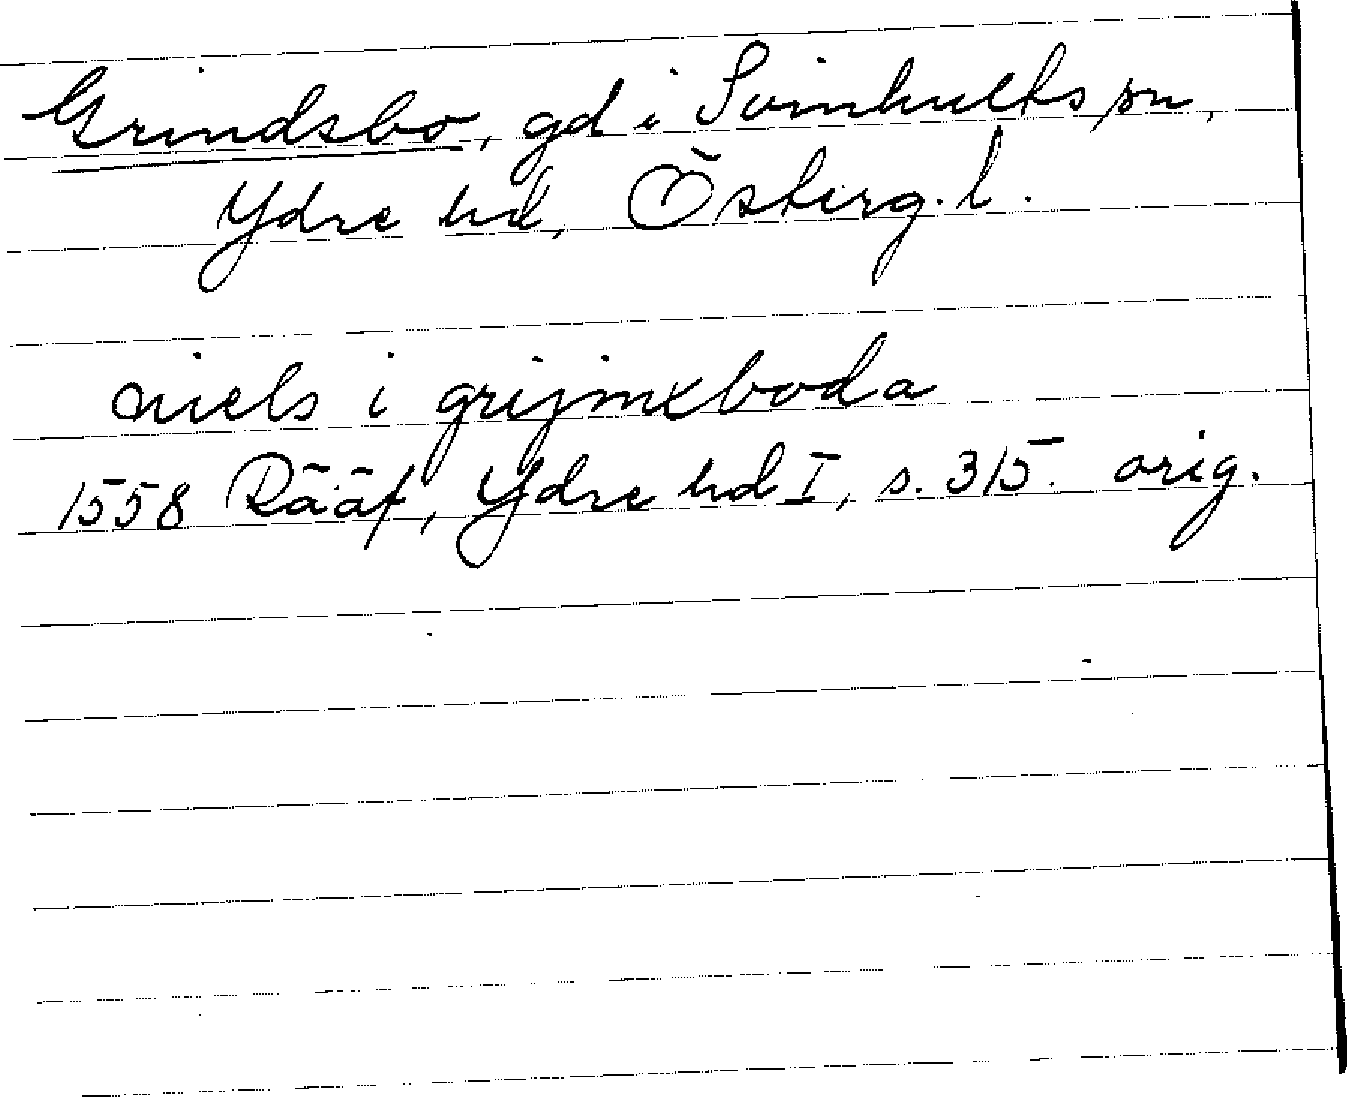 Grindsbo, gd i Svinhults sn,
Ydre hd, Österg. l.
niels i grijmxboda
1558 Rääf, Ydre hd I, s. 315. orig.